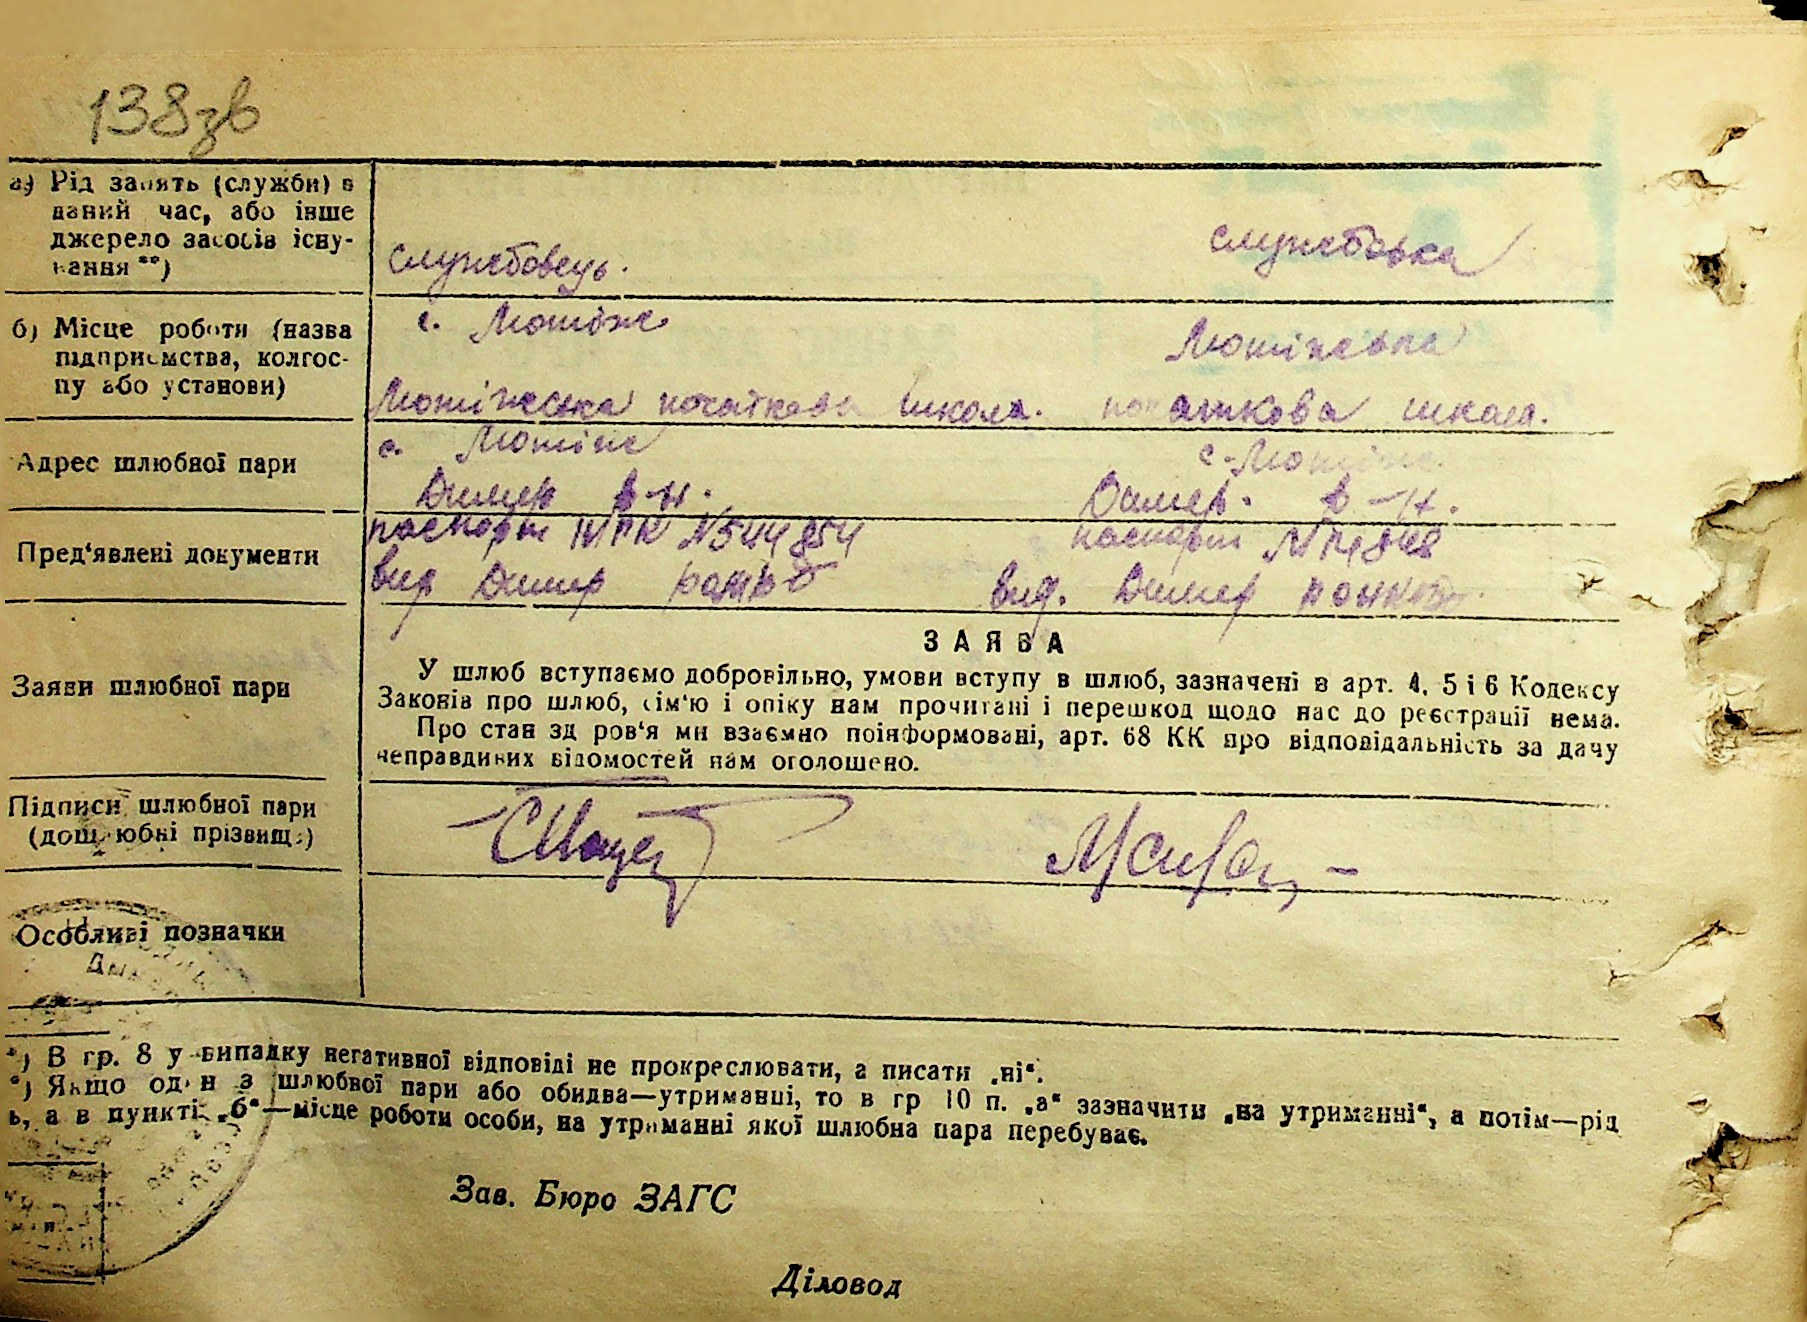 138зв
а) Рід занять (служби) в
даний час, або інше
джерело засобів існу-
вання **)
службовець.
службовка
б) Місце роботи (назва
підприємства, колгос-
пу або установи)
с. Лютіж
Лютіжська
Лютіжська початкова школа. початкова школа.
Адрес шлюбної пари
с. Лютіж
с. Лютіж
Димер р-н.
Димер. р-н.
Пред‘явлені документи
паспорт №544854
паспорт
вид Димер
вид. Димер
Заяви шлюбної пари
ЗАЯВА
У шлюб вступаємо добровільно, умови вступу в шлюб, зазначені в арт. 4, 5 і 6 Кодексу
Законів про шлюб, сім‘ю і опіку нам прочитані і перешкод щодо нас до реєстрації нема.
Про стан здоров‘я ми взаємно поінформовані, арт. 68 КК про відповідальність за дачу
неправдивих відомостей нам оголошено.
Підписи шлюбної пари
(дошлюбні прізвища)
Особливі позначки
*) В гр. 8 у випадку негативної відповіді не прокреслювати, а писати „ні“.
*) Якщо один з шлюбної пари або обидва—утриманці, то в гр 10 п. „а“ зазначити „на утриманні“, а потім—рід
ь, а в пункті „б“—місце роботи особи, на утриманні якої шлюбна пара перебуває.
Зав. Бюро ЗАГС
Діловод